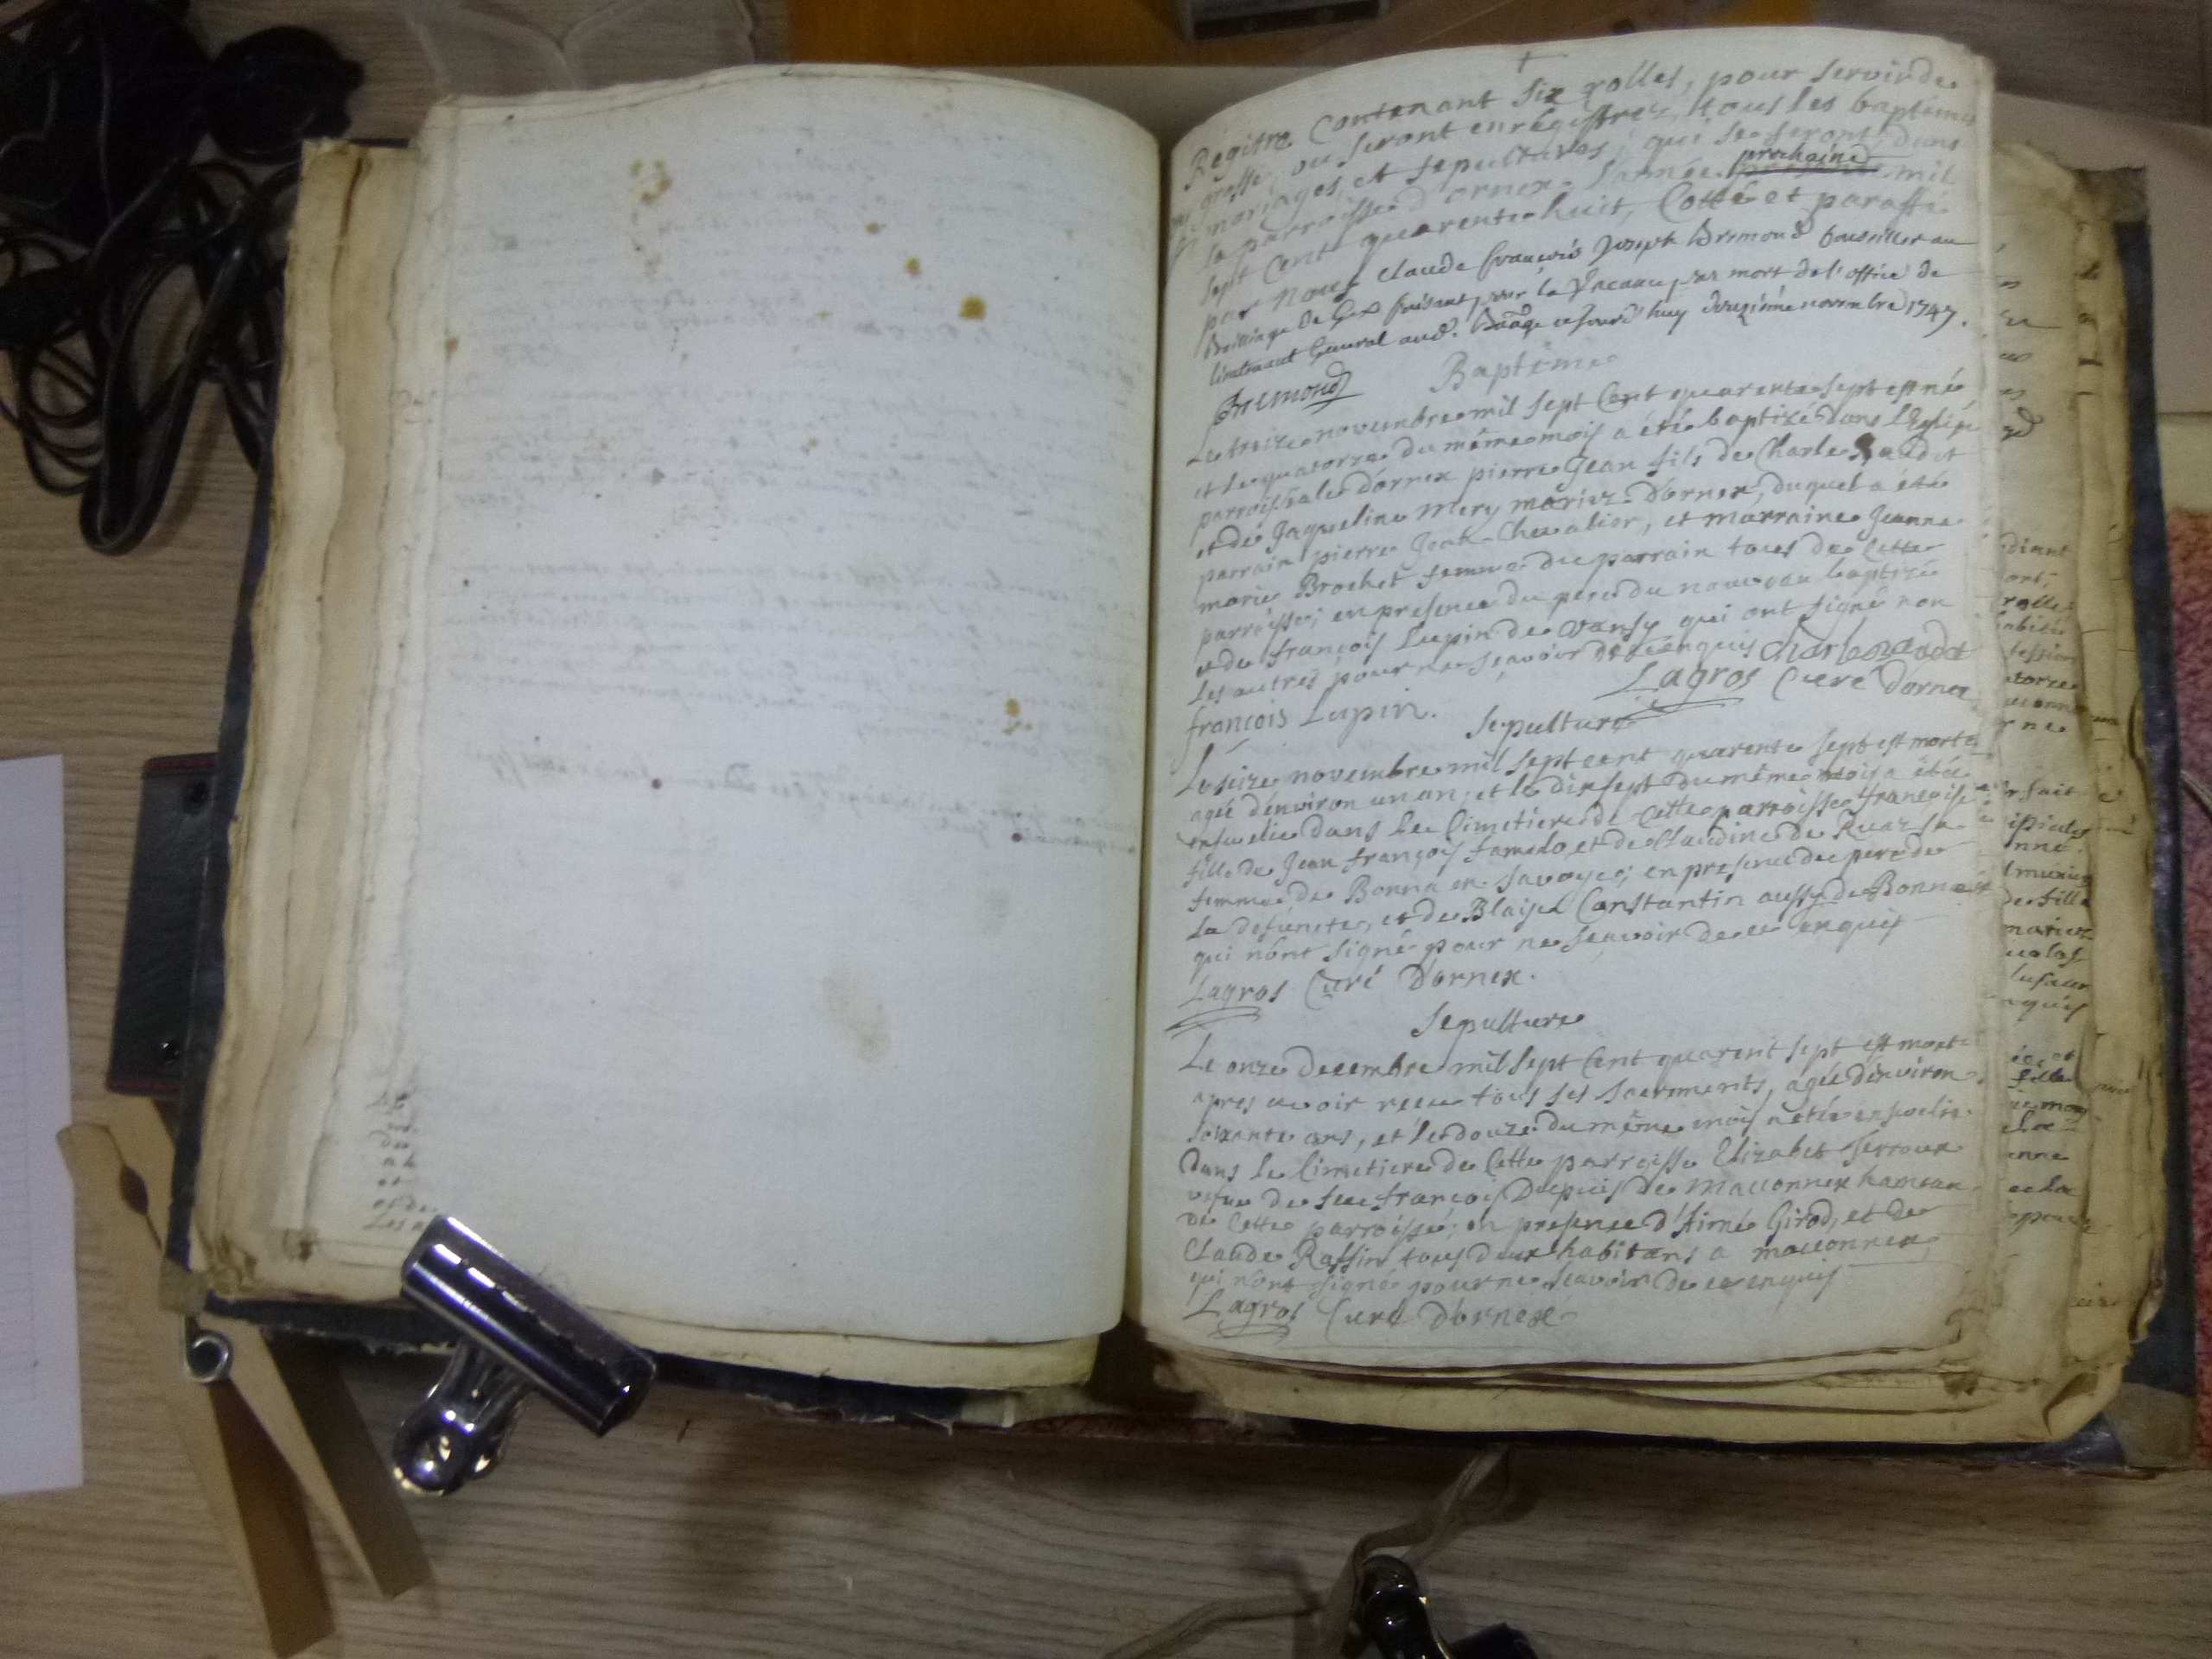 Registre Contenant six rolles, pour servir de
grosse, ou seront enregistrez tous les baptemes
mariages, et sepultures, qui se feront dans
la parroisse d'ornex l'année prochaine mil
sept Cent quarente huit, Cotté et paraffé
par Nous Claude françois Joseph Bremond Conseiller au
Bailliage de Gex faisant pour la vacance par mort de l'office de
lieutenant General aud. Baage ce Jourd'huy douzième novembre 1747.
Bremond
Baptême
Le treize novembre mil sept Cent quarente sept est né
et le quatorze du même mois a été baptizé dans l'Eglise
parroissiale d'ornex pierre Jean fils de Charle Baudet
et de Jaqueline Mery mariez d'ornex, duquel a été
parrain pierre Jean Chevalier, et marraine Jeanne
marie Brochet femme du parrain tous de Cette
parroisse; en presence du pere du nouveau baptizé
et de françois Lupin de versy qui ont signé non
les autres pour ne sçavoir de ce enquis Charle baudet
françois Lupin. Lagros Curé d'ornex
Sepulture
Le seize novembre mil sept cent quarente sept est morte
agée d'environ un an; et le dixsept du même mois a étée
ensevelie dans le Cimetiere de Cette parroisse françoise
fille de Jean françois famelo, et de Claudine de Ruaz sa
femme de Bonna en Savoye; en presence du pere de
la defuncte, et de Blaise Constantin aussy de Bonna
qui n'ont signé pour ne sçavoir de ce enquis
Lagros Curé D'ornex.
Sepulture
Le onze Decembre mil sept Cent quarent sept est morte
apres avoir receu tous ses Sacrements, agée d'environ
soixante ans, et le douze du même mois a étée ensevelie
Dans le Cimetiere de Cette parroisse Elizabet Serroux
vefve de feu françois Dupuis de Maconnex hameau
de Cette parroisse; en presence d'Aimé Girod, et de
Claude Raffin tous deux habitans a maconnex,
qui n'ont signé pour ne sçavoir de ce enquis
Lagros Curé D'ornex